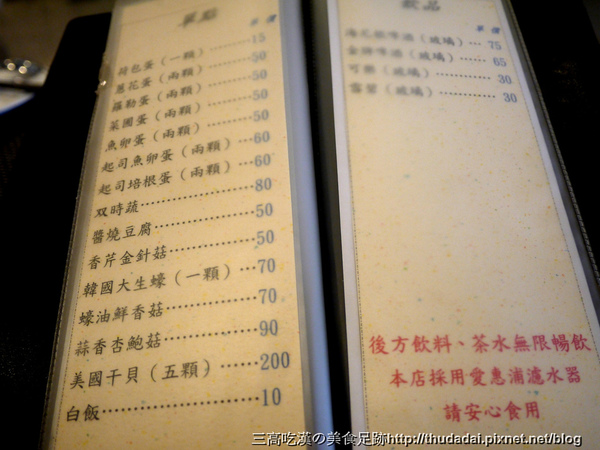 單點
單價
荷包蛋(一顆)………15
蔥花蛋(兩顆)………50
羅勒蛋(兩顆)………50
菜圃蛋(兩顆)………50
魚卵蛋(兩顆)………50
起司魚卵蛋(兩顆)…60
起司培根蛋(兩顆)…60
双時蔬………………80
醬燒豆腐……………50
香芹金針菇…………50
韓國大生蠔(一顆)…70
蠔油鮮香菇…………70
蒜香杏鮑菇…………90
美國干貝(五顆)……200
白飯…………………10
飲品
單價
海尼根啤酒(玻璃)…75
金牌啤酒(玻璃)……65
可樂(玻璃)…………30
雪碧(玻璃)…………30
後方飲料、茶水無限暢飲
本店採用愛惠浦濾水器
請安心食用
三高吃漢の美食足跡http://thudadai.pixnet.net/blog